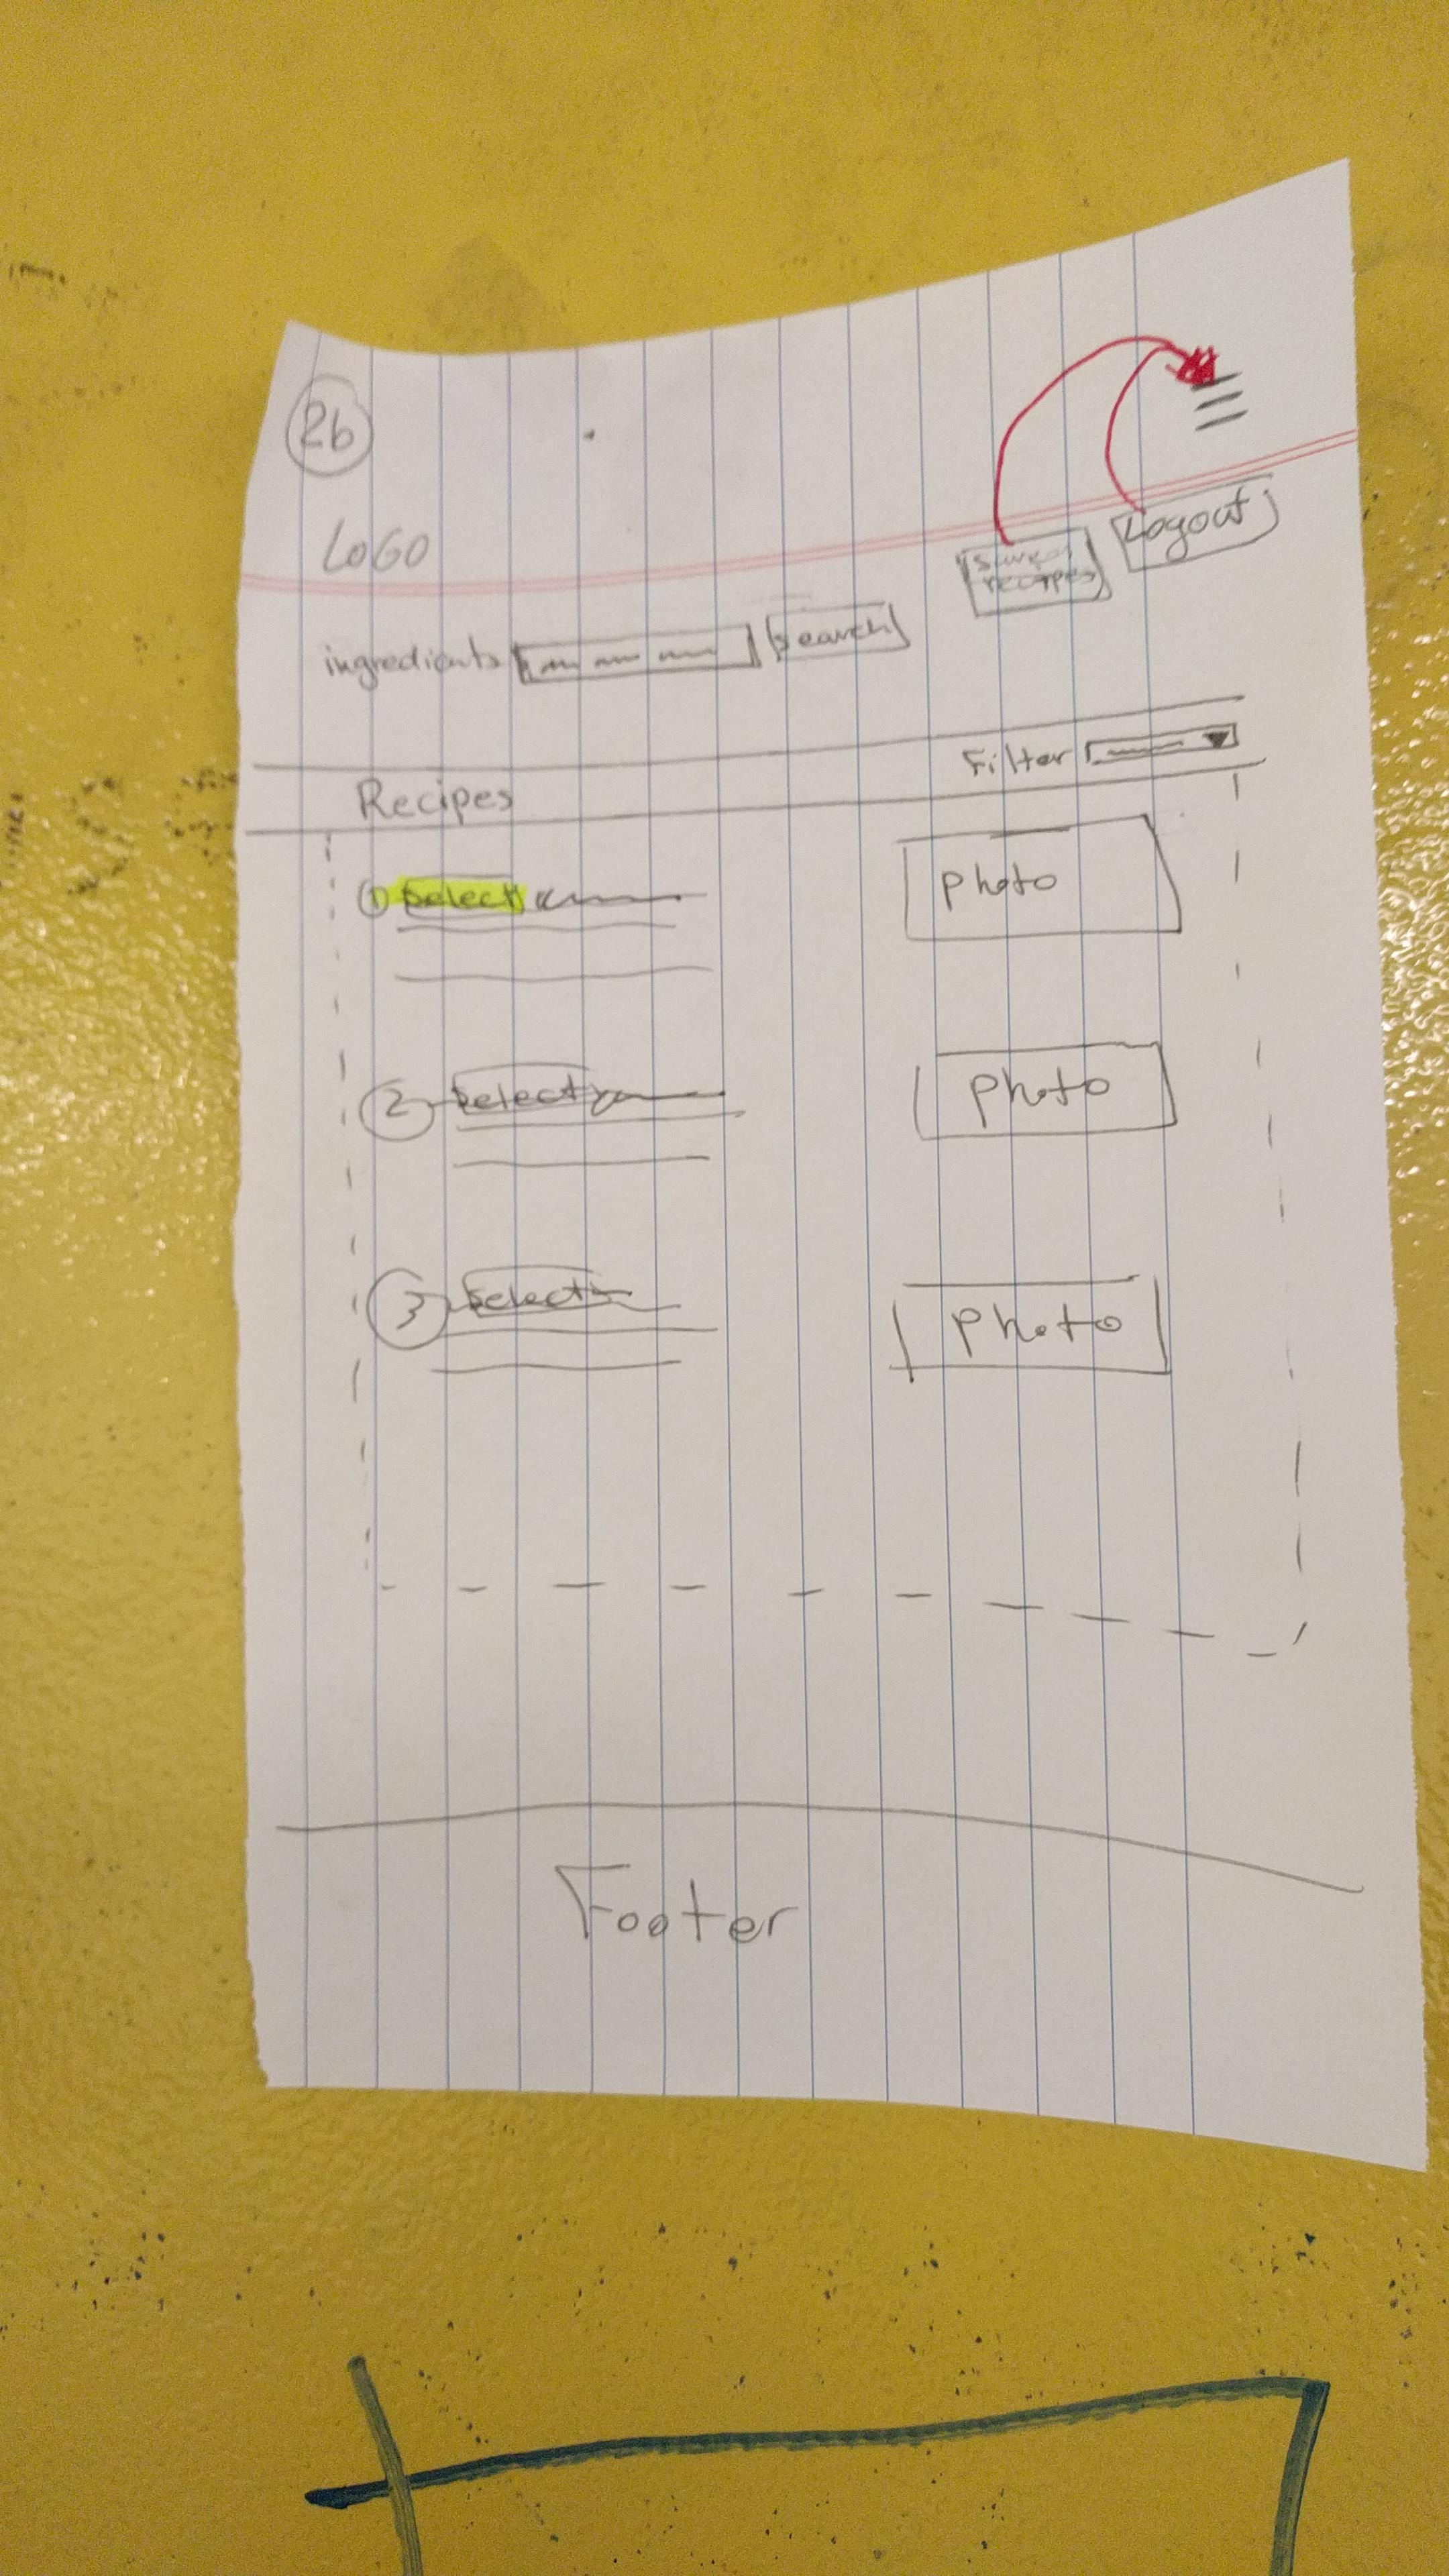 2b
LOGO
saved recipes
Logout
ingredients
search
Filter
Recipes
1 Select
photo
2 Select
photo
3 Select
photo
Footer